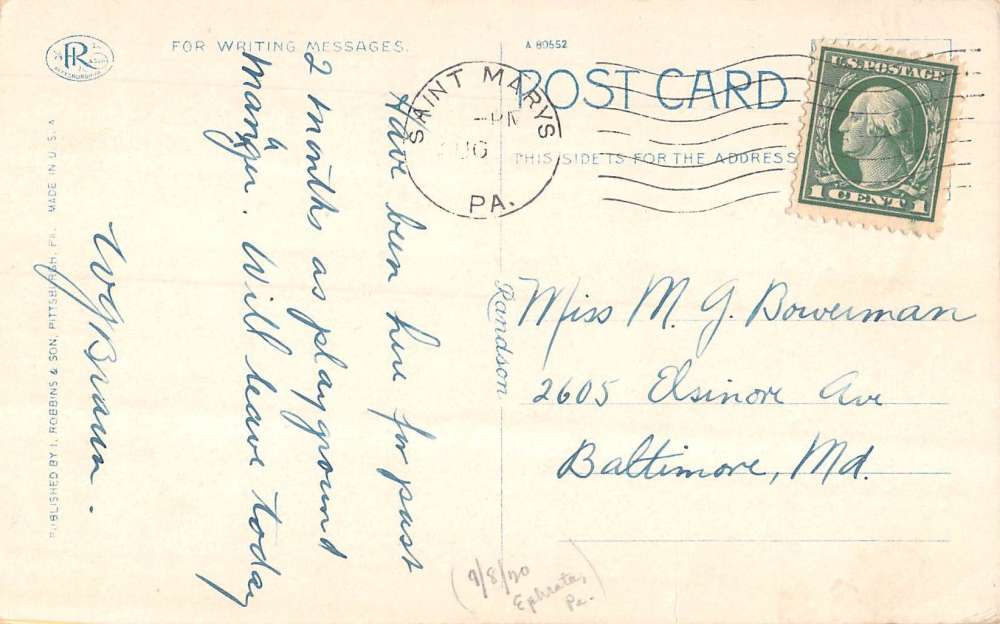 FOR WRITING MESSAGES.
A 89552
POST CARD
THIS SIDE IS FOR THE ADDRESS
SAINT MARYS
PM
PA.
U.S. POSTAGE
1 CENT 1
Have been here for past
2 months as playground
manager. Will leave today
Brown.
Miss M. G. Bowerman
2605 Elsinore Ave
Baltimore, Md.
Randson
PUBLISHED BY I. ROBBINS & SON, PITTSBURGH, PA. MADE IN U.S.A
(9/8/20
Ephrata,
Pa.)